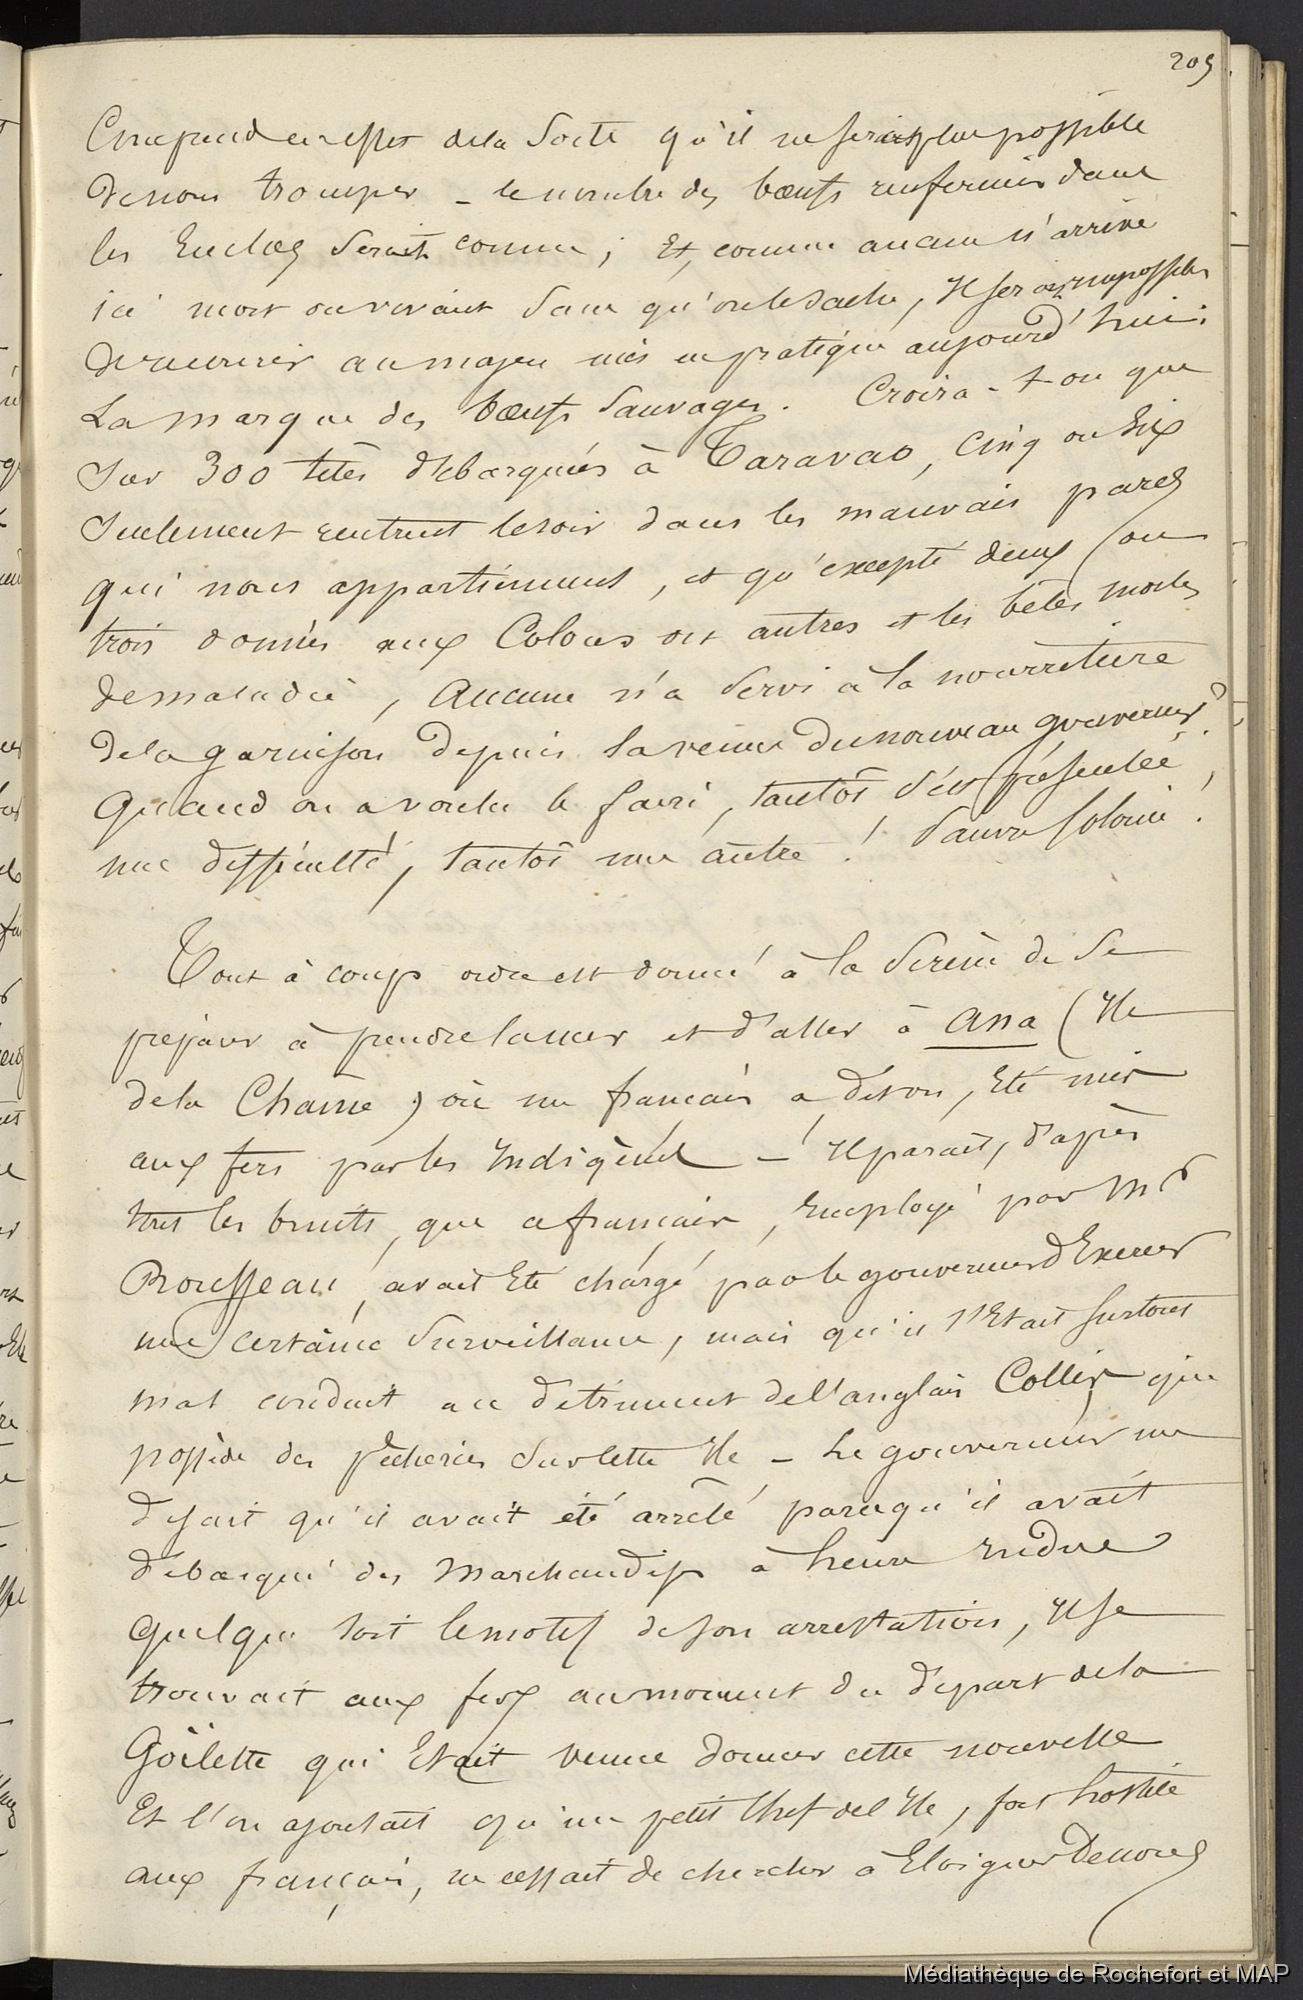 205
en effet de la Sorte qu'il ne serait plus possible
de nous tromper _ le nombre des bœufs renfermés dans
les Enclos Serait connu ; Et, comme aucun n'arrive
ici mort ou vivant Sans qu'on le Sache, Il serait impossible
de recourir au moyen mis en pratique aujourd'hui :
La marque des bœufs Sauvages. Croira-t-on que
Sur 300 têtes débarquées à Taravao, Cinq ou Six
Seulement rentrent le soir dans les mauvais parcs
qui nous appartiennent, et qu'excepté deux ou
trois données aux Colons ou autres et les bêtes mortes
de maladie, Aucune n'a Servi à la nourriture
de la garnison depuis la venue du nouveau gouverneur ?
Quand on a voulu le faire, tantôt s'est présentée
une difficulté, tantôt une autre ! Pauvre Colonie !
Tout à coup ordre est donné à la Sirène de Se
préparer à prendre la mer et d'aller à Ana (Ile
de la Chaîne) où un français a, dit-on, Eté mis
aux fers par les Indigènes _ Il paraît, d'après
tous les bruits, que ce français, Employé par Mr
Rousseau, avait Eté chargé par le gouverneur d'Exercer
une certaine Surveillance, mais qu'il s'Etait Surtout
mal conduit au détriment de l'anglais Collier qui
possède des pêcheries Sur cette Ile _ Le gouverneur me
disait qu'il avait été arrêté parcequ'il avait
débarqué des Marchandises à heure Indue
Quelque soit le motif de son arrestation, Il se
trouvait aux fers au moment du départ de la
Goëlette qui Etait venue donner cette nouvelle
Et l'on ajoutait qu'un petit Chef de l'Ile, fort hostile
aux français, ne cessait de chercher à Eloigner De nous
Médiathèque de Rochefort et MAP